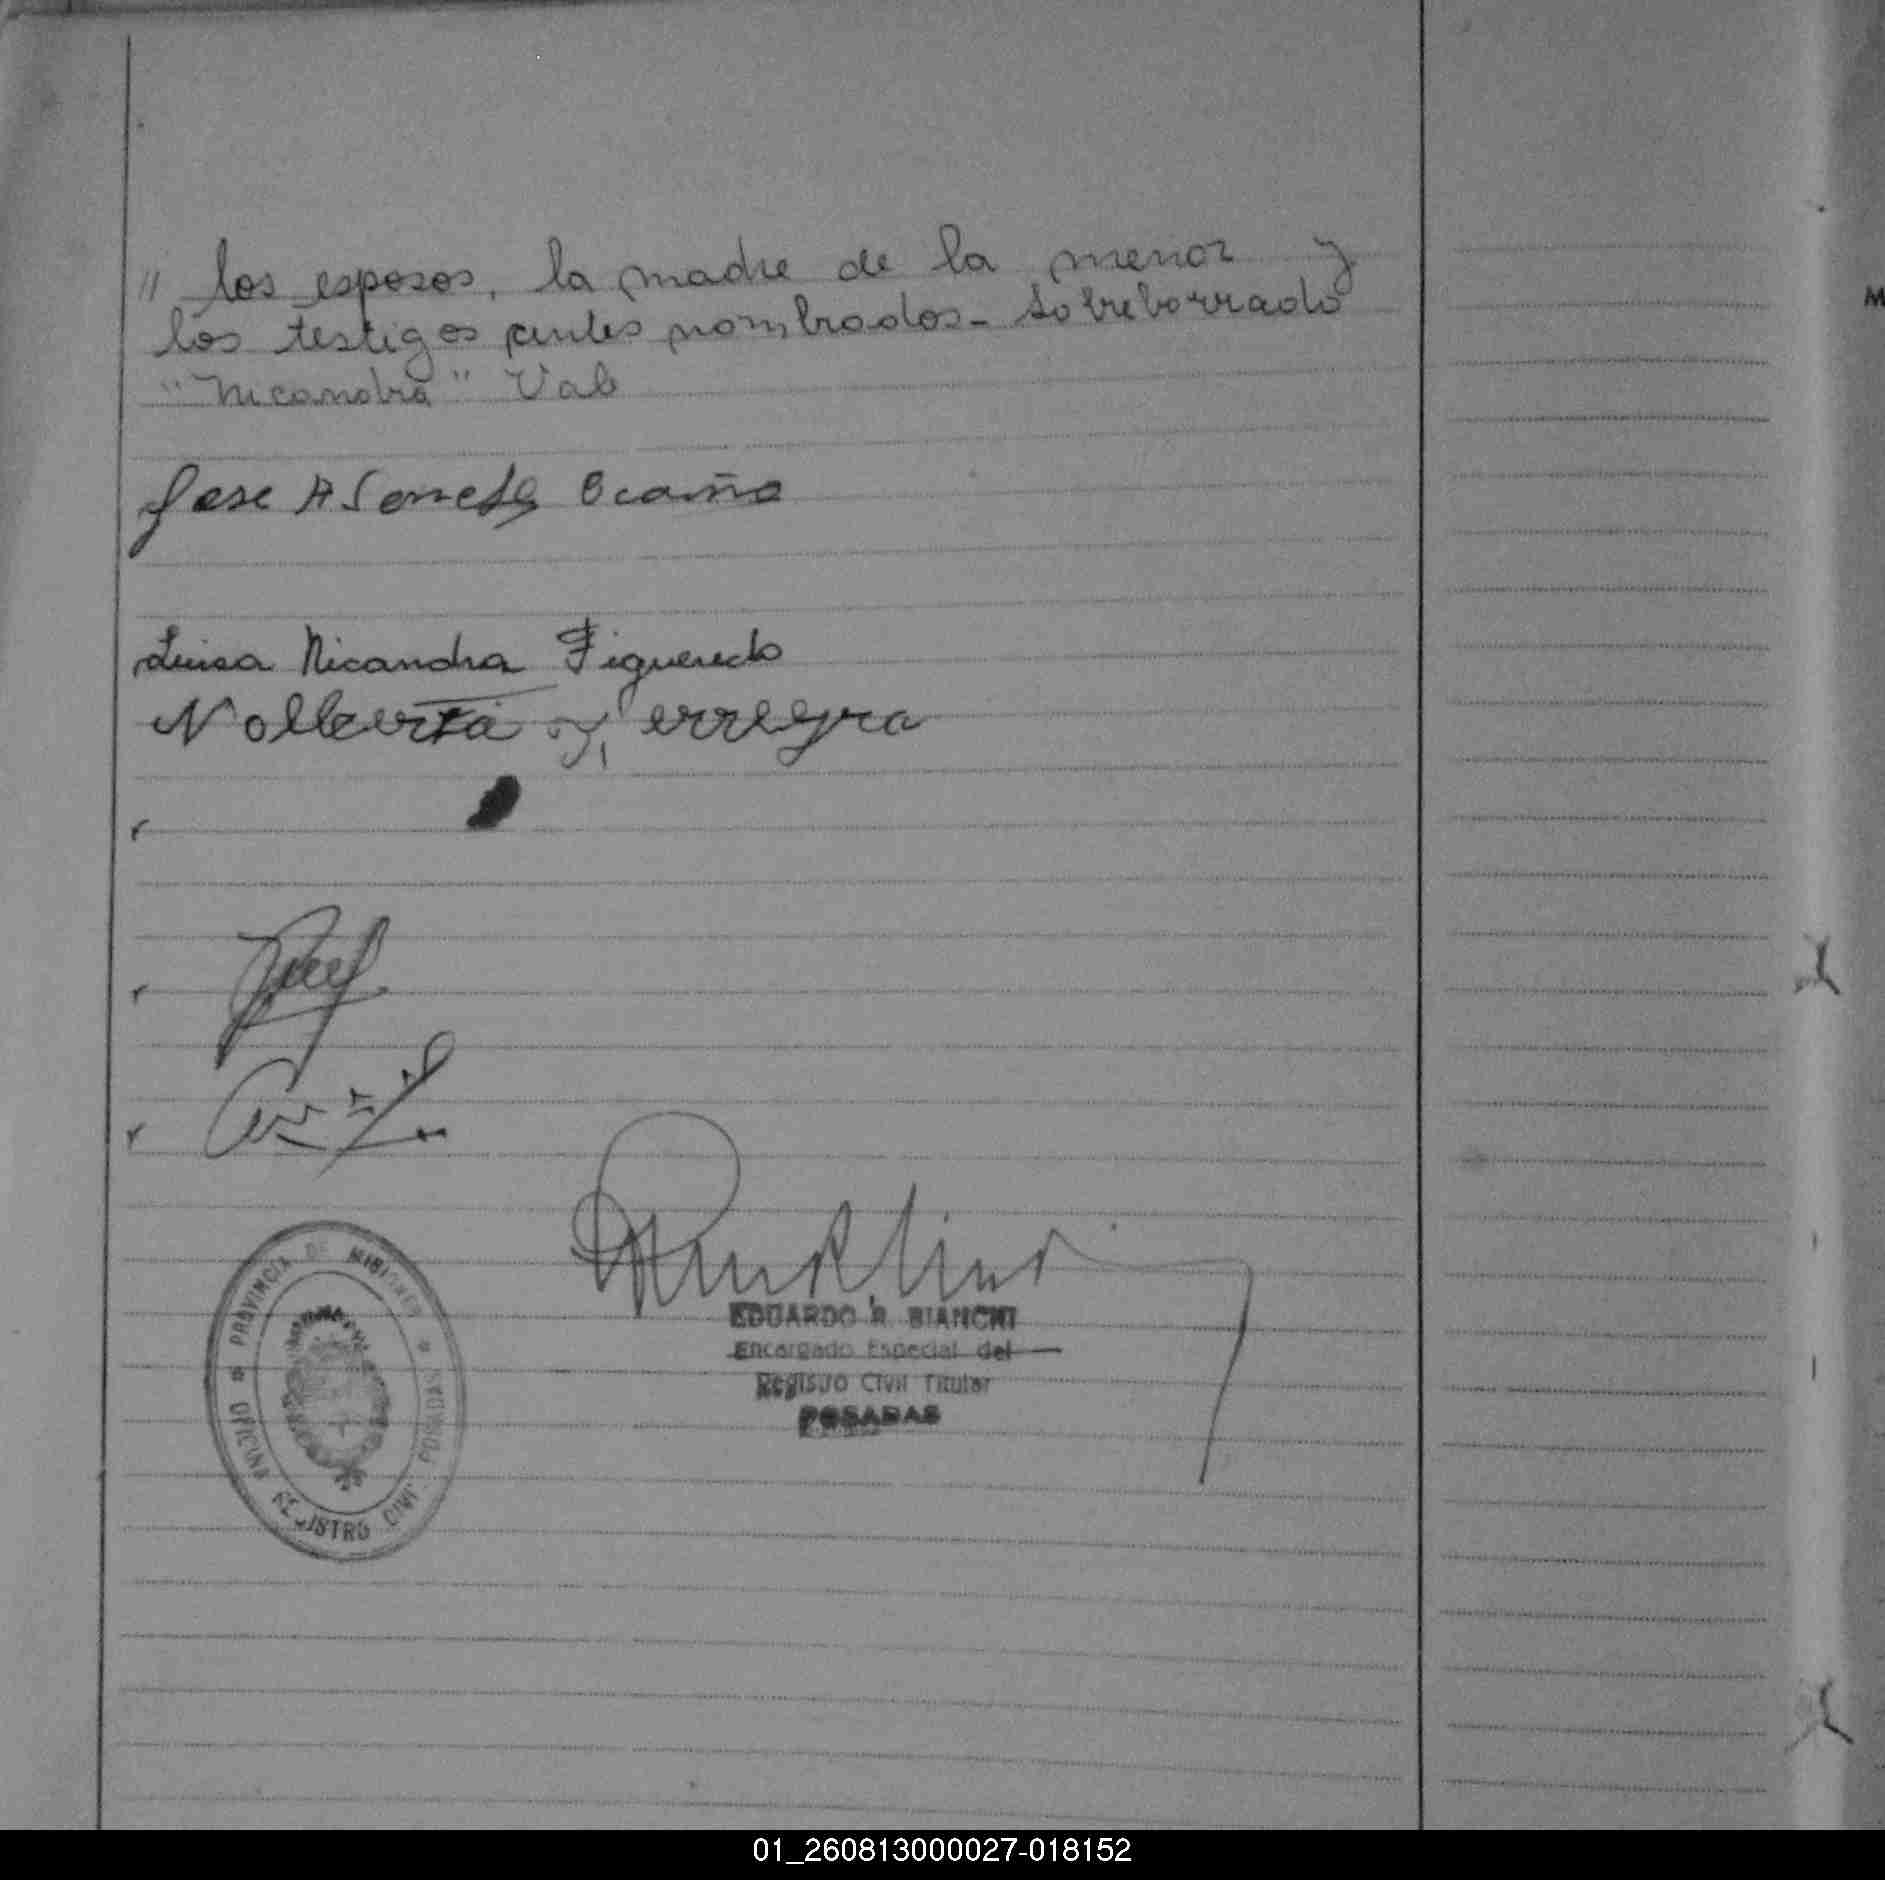 // los esposos, la madre de la menor y
los testigos antes nombrados - Sobreborrado
"Nicandra" Vale
Jose A Ocaño
Luisa Nicandra Figueredo
Nolberta
PROVINCIA DE MISIONES * OFICINA REGISTRO CIVIL POSADAS *
EDUARDO R. BIANCHI
Encargado Especial del
Registro Civil Titular
POSADAS
M
01_260813000027-018152